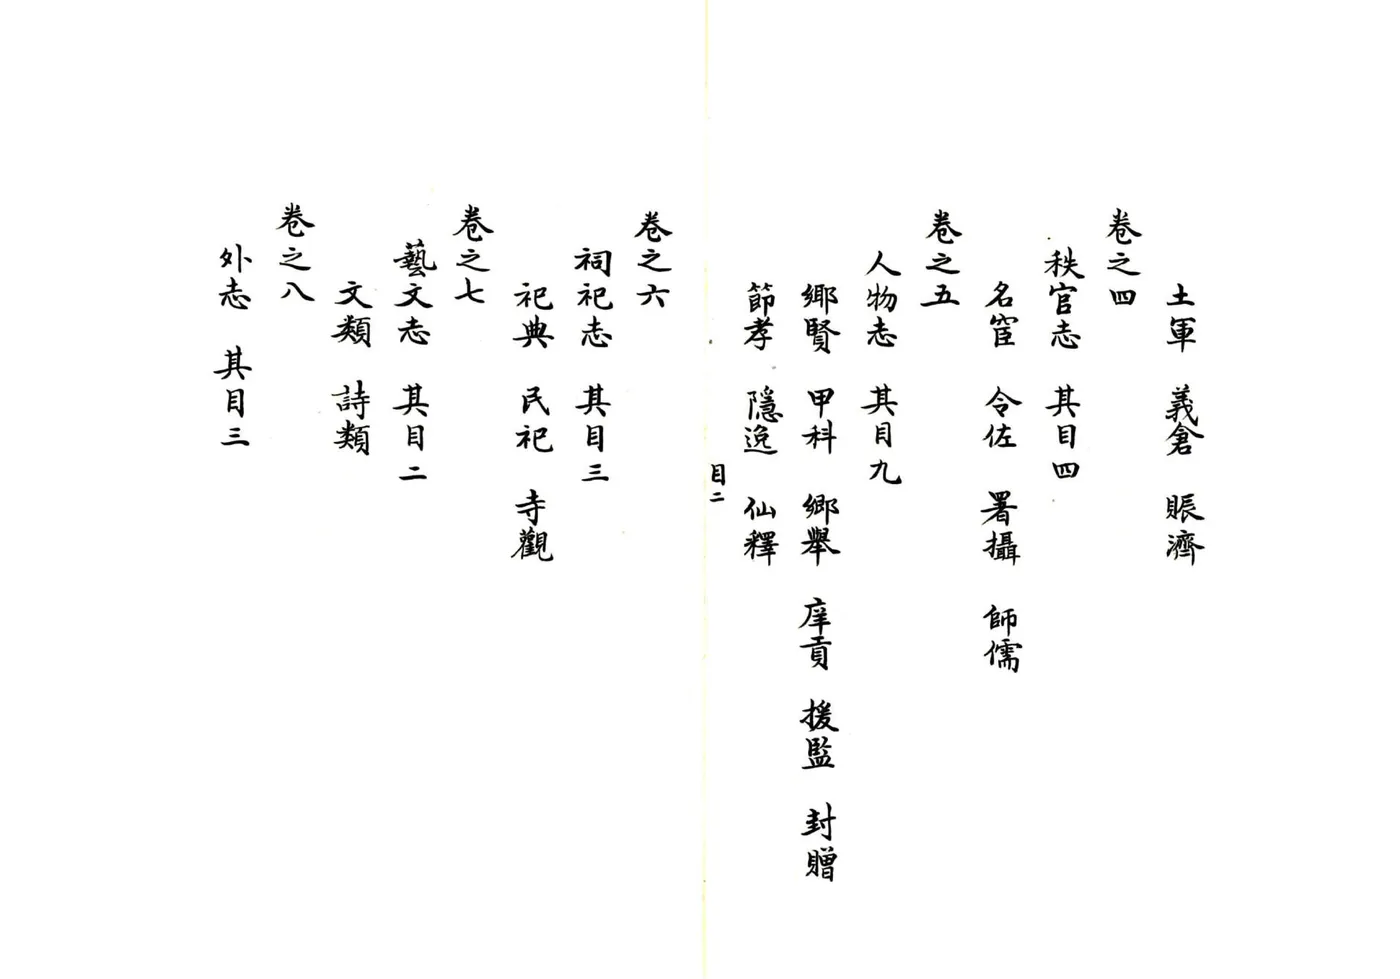 土軍　義倉　賑濟
卷之四
秩官志　其目四
名宦　令佐　署攝　師儒
卷之五
人物志　其目九
鄉賢　甲科　鄉舉　庠貢　援監　封贈
節孝　隱逸　仙釋
目二
卷之六
祠祀志　其目三
祀典　民祀　寺觀
卷之七
藝文志　其目二
文類　詩類
卷之八
外志　其目三